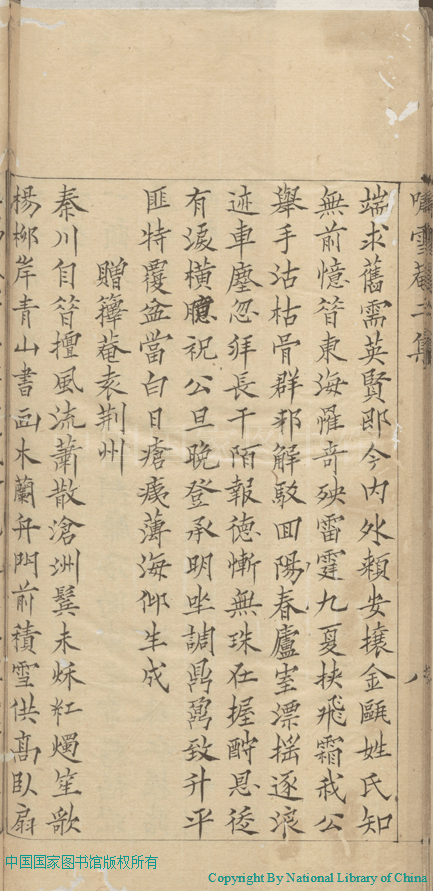 嘯雪菴二集
端求舊需英賢即今內外頼安攘金甌姓氏知
無前憶昔東海罹奇殃雷霆九夏挾飛霜我公
舉手沽枯骨群邪解駁回陽春廬室漂搖逐浪
迹車塵忽拜長干陌報德慚無珠在握酧恩徒
有淚橫臆祝公旦晚登承明坐調鼎鼐致升平
匪特覆盆當白日瘡痍薄海仰生成
贈籜菴袁荆州
秦川自昔擅風流蕭散滄洲鬂未秌紅燭笙歌
楊柳岸青山書畫木蘭舟門前積雪供高臥扇
八
中国国家图书馆版权所有
Copyright By National Library of China